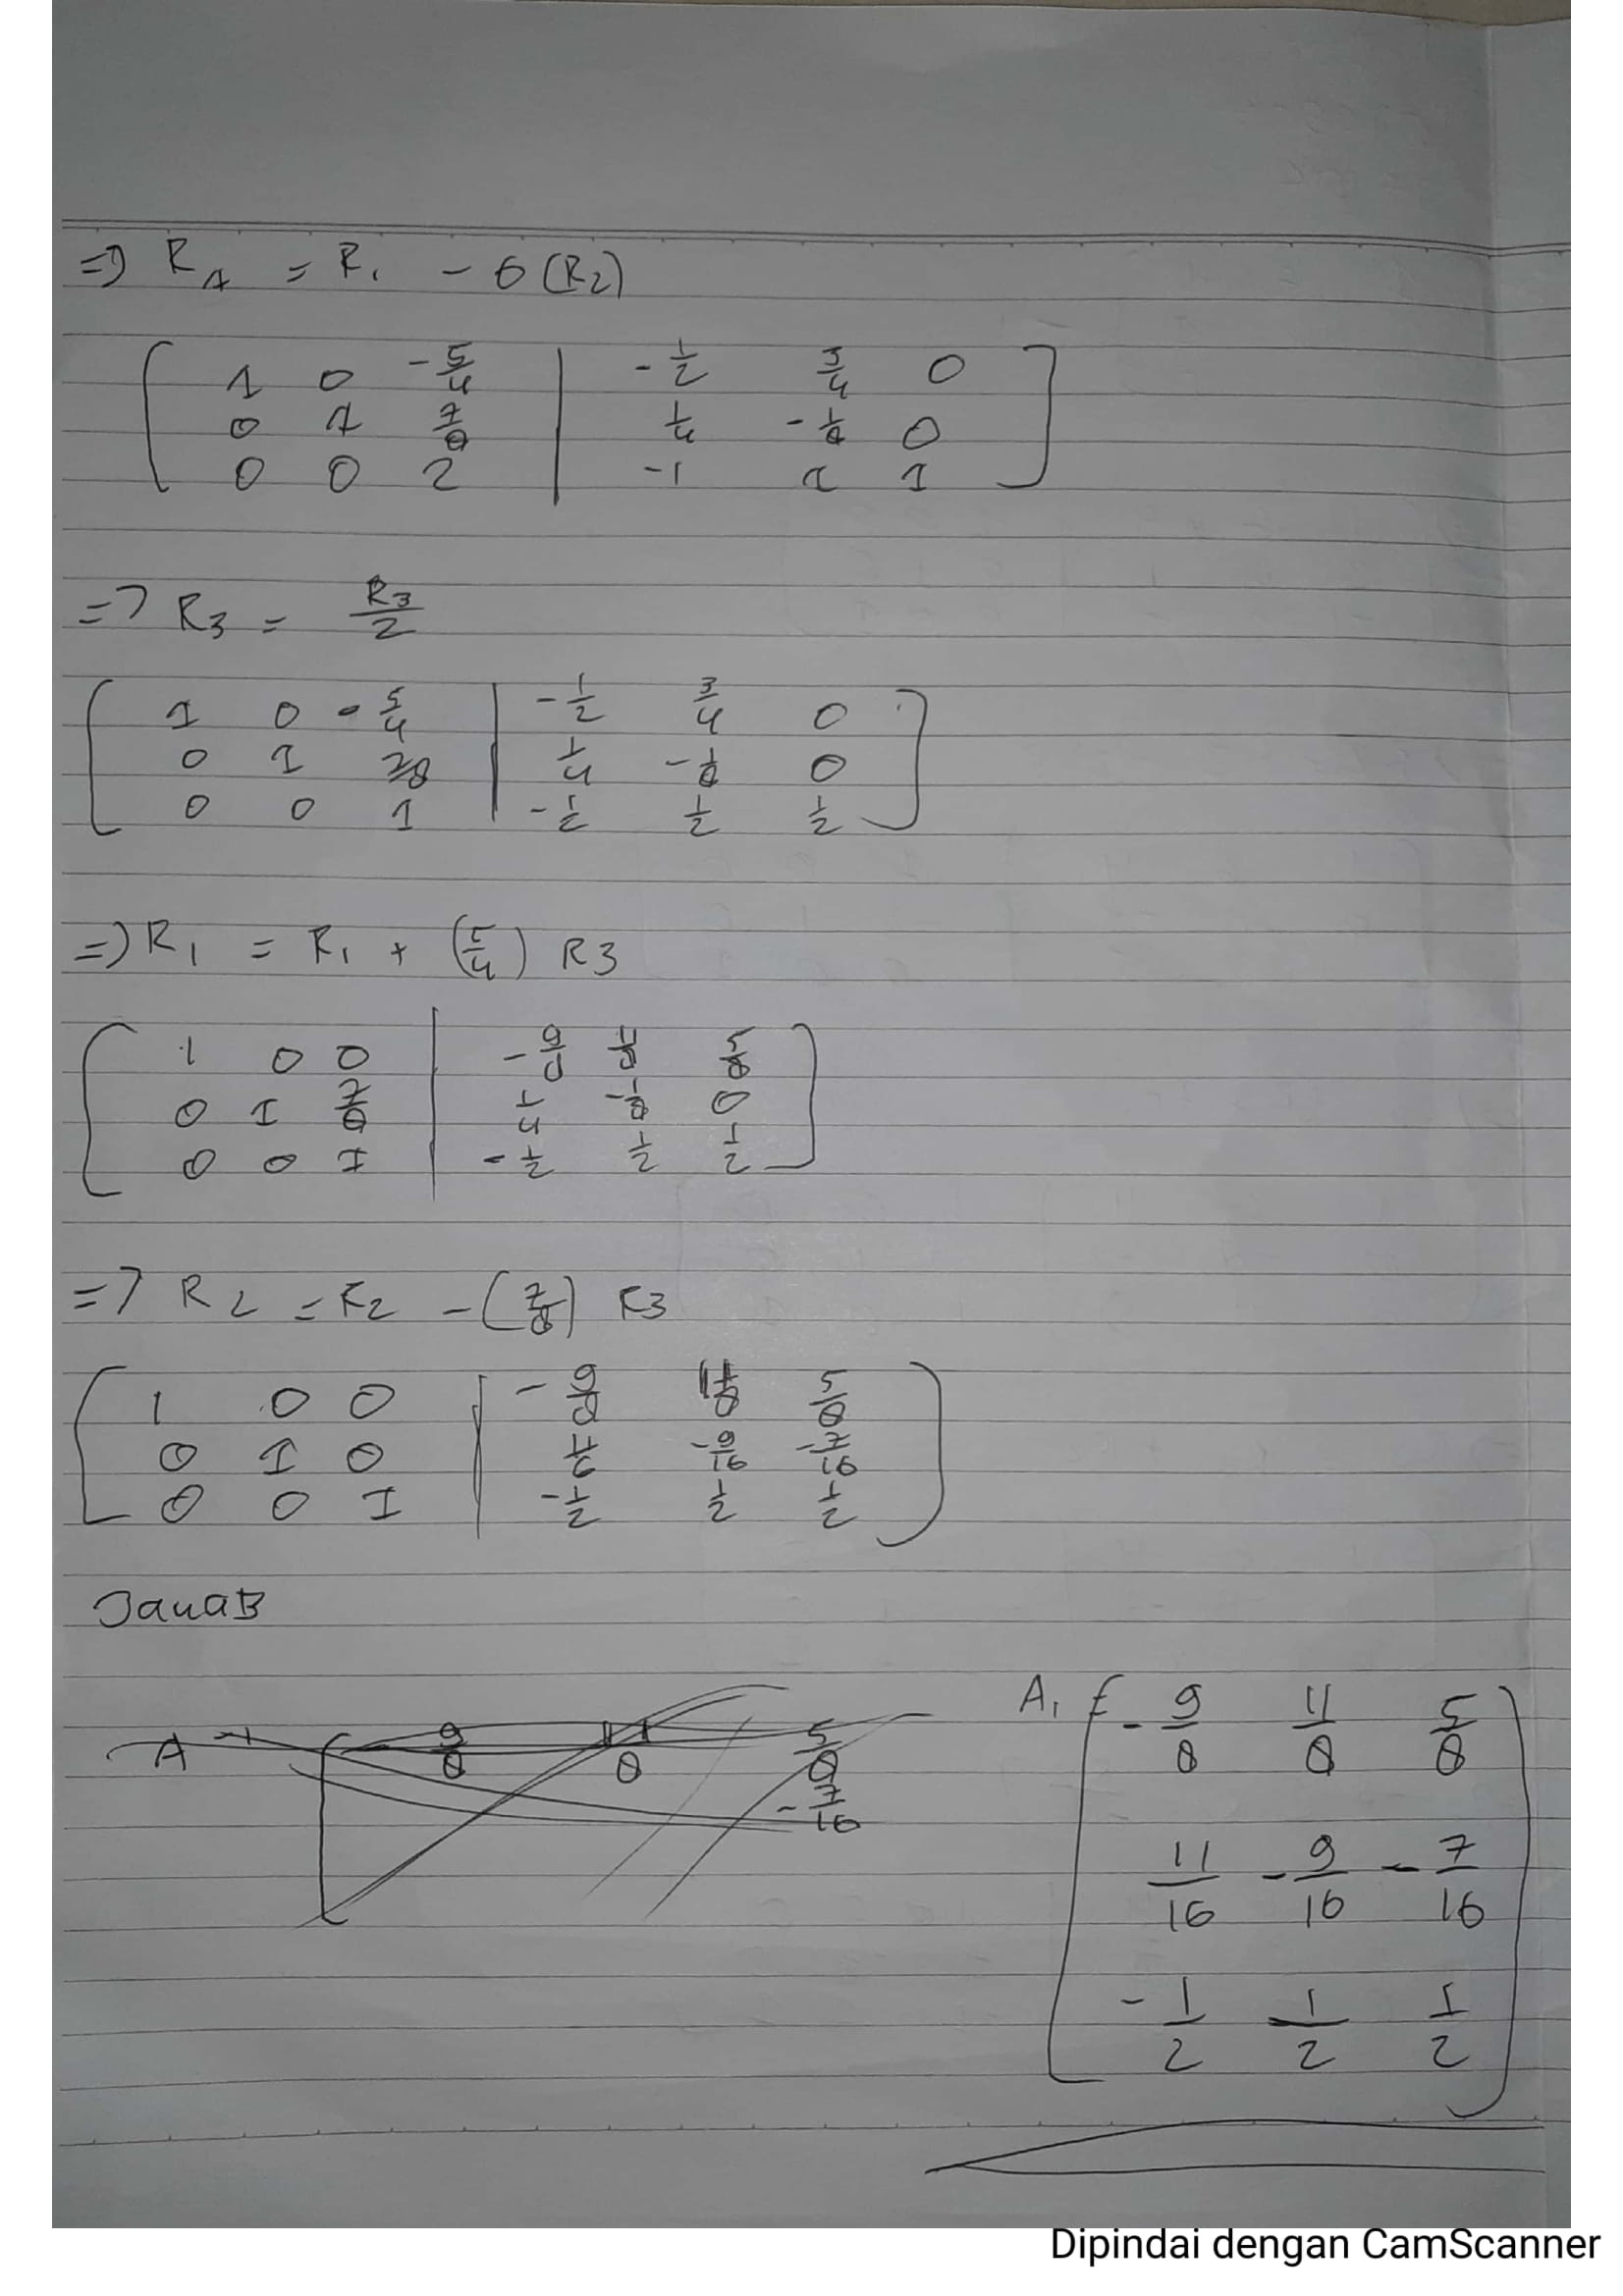 => R1 = R1 - 6 (R2)
1 0 -5/4 | -1/2 3/4 0
0 1 7/8 | 1/4 -1/8 0
0 0 2 | -1 1 1
=> R3 = R3/2
1 0 -5/4 | -1/2 3/4 0
0 1 7/8 | 1/4 -1/8 0
0 0 1 | -1/2 1/2 1/2
=> R1 = R1 + (5/4) R3
1 0 0 | -9/8 11/8 5/8
0 1 7/8 | 1/4 -1/8 0
0 0 1 | -1/2 1/2 1/2
=> R2 = R2 - (7/8) R3
1 0 0 | -9/8 11/8 5/8
0 1 0 | -9/16 -7/16
0 0 1 | -1/2 1/2 1/2
JawaB
A -1 9/8 11/8 5/8
-7/16
A1 = -9/8 11/8 5/8
11/16 -9/16 -7/16
-1/2 1/2 1/2
Dipindai dengan CamScanner